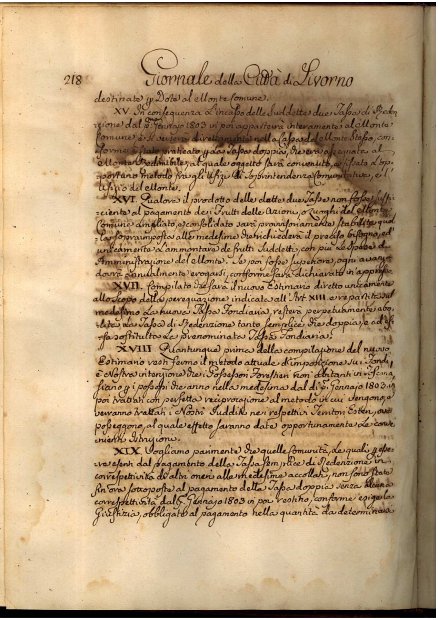 218
Giornale della Città di Livorno
destinate p Dote al Monte Comune.
XV. In consequenza L'incasso delle Suddette due Tasse di Reden-
zione dal p.º Gennajo 1803 in poi apparterrà interamente al Monte
Comune, e si verserà direttamente nella Cassa del Monte Stesso, con-
forme è stato praticato p La Tassa doppia, che era assegnata al
Monte Redimibile, al quale oggetto sarà convenuto, e fissato L'op-
portuno metodo fra gl'Ufizj di Soprintendenza Comunitativa, e L'
Ufizio del Monte.
XVI. Qualora il prodotto delle dette due Tasse non fosse suffi-
ciente al pagamento dei Frutti delle Azioni, o Luoghi del Monte
Comune ampliato, e consolidato sarà provvisoriamente stabilita quel-
la sopraimposta alle medesime che richiederà il preciso bisogno, ed
unicamente L'ammontare de frutti Suddetti, con più Le Spese di
Amministrazione del Monte. Se poi fosse superiore, ogni avanzo
dovrà annualmente erogarsi, conforme sarà dichiarato in appresso.
XVII. Compilato che sarà il nuovo Estimario diretto unicamente
allo scopo della perequazione indicata all'Art. XIII e repartita sul
medesimo La nuova Tassa Fondiaria, resterà perpetuamente abo-
lita La Tassa di Redenzione tanto Semplice che doppia, e ad es-
sa sostituita La prenominata Tassa Fondiaria.
XVIII. Quantunque prima della compilazione del nuovo
Estimario resti fermo il metodo attuale d'imposizione su i Fondi,
è Nostra intenzione che i Possessori Forestieri non abitanti in Tosca-
na, p i possessi che anno nella medesima dal dì p.º Gennajo 1803 in
poi trattati con perfetta reciprocazione al metodo in cui vengono, e
verranno trattati i Nostri Sudditi nei respettivi Territori Esteri, ove
posseggono, al quale effetto saranno date opportunamente Le con-
venienti Istruzioni.
XIX. Vogliamo parimente che quelle Comunità, Le quali p esse-
re esenti dal pagamento della Tassa Semplice di Redenzione in
correspettività di altri oneri alle medesime accollati, non sono state
fin'ora sottoposte al pagamento della Tassa doppia senza alcuna
correspettività dal p.º Gennajo 1803 in poi restino, conforme esige la
Giustizia, obbligate al pagamento nella quantità da determinarsi